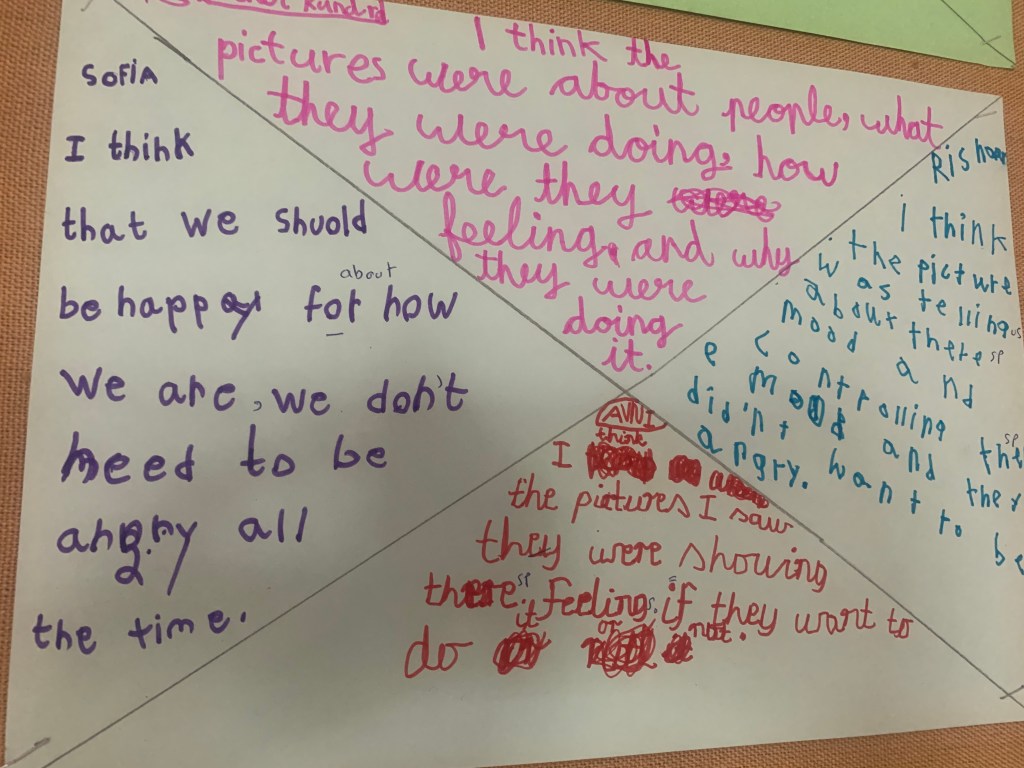 SOFIA
I think
that we shuold
be happy for how
about
we are, we don't
need to be
angry all
the time.
I think the
pictures were about people, what
they were doing, how
were they
feeling, and why
they were
doing
it.
AVNI
think
I
the pictures I saw
they were showing
there sp feelings. if they want to
it or not.
do
i think
the picture
was telling us
about there sp
mood and
e controlling the sp
mood and they
did'nt want to be
angry.